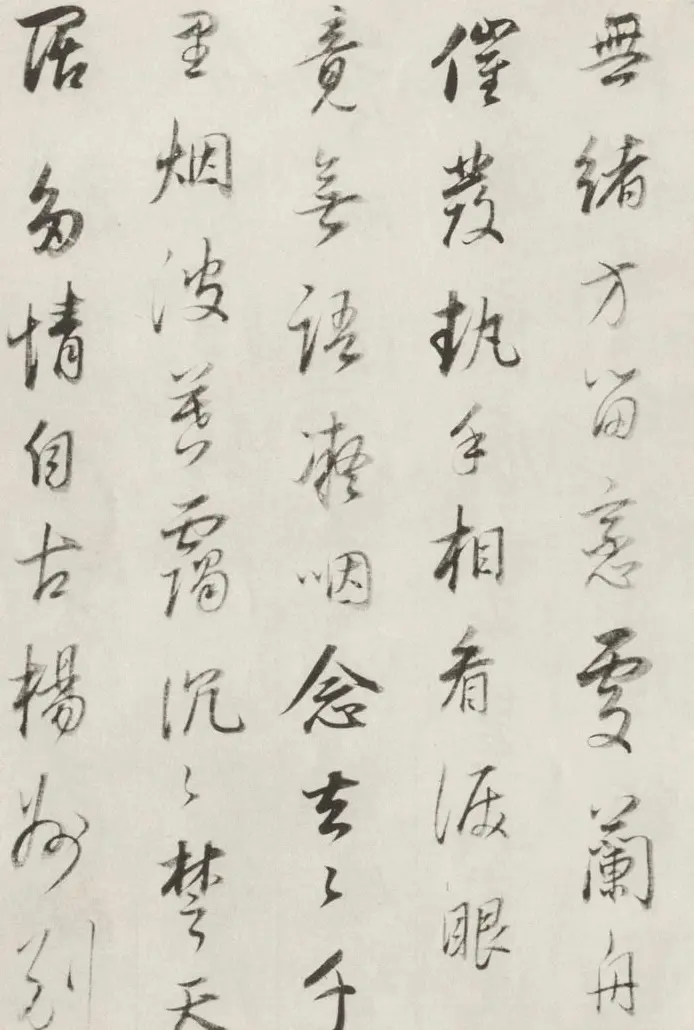 無緒方留戀處蘭舟
催發執手相看淚眼
竟無語凝咽念去〻千
里烟波暮靄沉〻楚天
闊多情自古傷離別